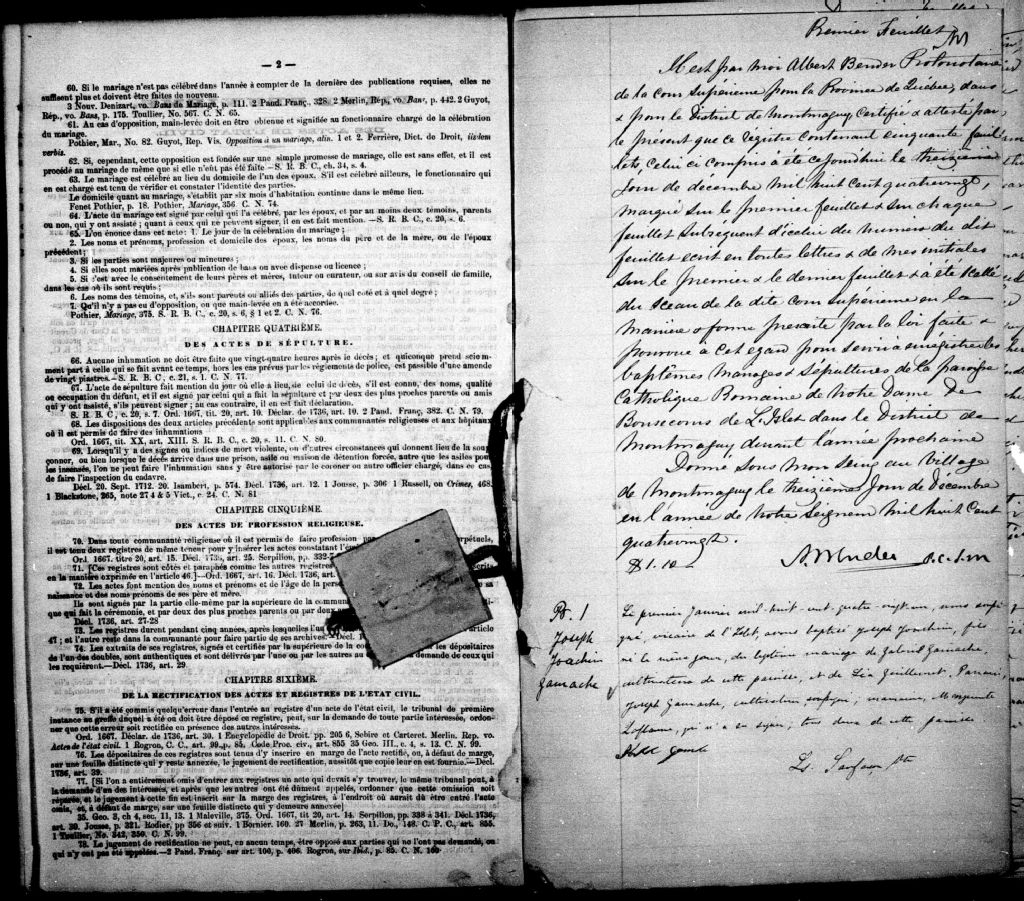 — 2 —
60. Si le mariage n'est pas célébré dans l'année à compter de la dernière des publications requises, elles ne
suffisent plus et doivent être faites de nouveau.
3 Nouv. Denizart, vo. Bans de Mariage, p. 111. 2 Pand. Franç., 328. 2 Merlin, Rép., vo. Bans, p. 442. 2 Guyot,
Rép., vo. Bans, p. 175. Toullier, No. 567. C. N. 65.
61. Au cas d'opposition, main-levée doit en être obtenue et signifiée au fonctionnaire chargé de la célébration
du mariage.
Pothier, Mar., No. 82. Guyot, Rep. Vis. Opposition à un mariage, alin. 1 et 2. Ferrière, Dict. de Droit, iisdem
verbis.
62. Si, cependant, cette opposition est fondée sur une simple promesse de mariage, elle est sans effet, et il est
procédé au mariage de même que si elle n'eût pas été faite — S. R. B. C., ch. 34, s. 4.
63. Le mariage est célébré au lieu du domicile de l'un des époux. S'il est célébré ailleurs, le fonctionnaire qui
en est chargé est tenu de vérifier et constater l'identité des parties.
Le domicile quant au mariage, s'établit par six mois d'habitation continue dans le même lieu.
Fenet Pothier, p. 18. Pothier, Mariage, 356 C. N. 74.
64. L'acte du mariage est signé par celui qui l'a célébré, par les époux, et par au moins deux témoins, parents
ou non, qui y ont assisté ; quant à ceux qui ne peuvent signer, il en est fait mention. —S. R. B. C., c. 20, s. 6.
65. L'on énonce dans cet acte: 1. Le jour de la célébration du mariage ;
2. Les noms et prénoms, profession et domicile des époux, les noms du père et de la mère, ou de l'époux
précédent ;
3. Si les parties sont majeures ou mineures ;
4. Si elles sont mariées après publication de bans ou avec dispense ou licence ;
5. Si c'est avec le consentement de leurs pères et mères, tuteur ou curateur, ou sur avis du conseil de famille,
dans les cas où ils sont requis ;
6. Les noms des témoins, et, s'ils sont parents ou alliés des parties, de quel coté et à quel degré ;
7. Qu'il n'y a pas eu d'opposition, ou que main-levée en a été accordée.
Pothier, Mariage, 375. S. R. B. C., c. 20, s. 6, § 1 et 2. C. N. 76.
CHAPITRE QUATRIÈME.
DES ACTES DE SÉPULTURE.
66. Aucune inhumation ne doit être faite que vingt-quatre heures après le décès ; et quiconque prend sciemment
part à celle qui se fait avant ce temps, hors les cas prévus par les règlements de police, est passible d'une amende
de vingt piastres.—S. R. B. C., c. 21, s. 1. C. N. 77.
67. L'acte de sépulture fait mention du jour où elle a lieu, de celui de décès, s'il est connu, des noms, qualité
ou occupation du défunt, et il est signé par celui qui a fait la sépulture et par deux des plus proches parents ou amis
qui y ont assisté, s'ils peuvent signer ; au cas contraire, il en est fait déclaration.
S. R. B. C., c. 20, s. 7. Ord. 1667, tit. 20, art. 10. Déclar. de 1736, art. 10. 2 Pand. Franç. 382. C. N. 79.
68. Les dispositions des deux articles précédents sont applicables aux communautés religieuses et aux hôpitaux
où il est permis de faire des inhumations
Ord. 1667, tit. XX, art. XIII. S. R. B. C., c. 20, s. 11. C. N. 80.
69. Lorsqu'il y a des signes ou indices de mort violente, ou d'autres circonstances qui donnent lieu de la soupçonner,
ou bien lorsque le décès arrive dans une prison, asile ou maison de détention forcée, autre que les asiles pour
les insensés, l'on ne peut faire l'inhumation sans y être autorisé par le coroner ou autre officier chargé, dans ce cas,
de faire l'inspection du cadavre.
Décl. 20. Sept. 1712. 20. Isambert, p. 574. Décl. 1736, art. 12. 1 Jousse, p. 306 1 Russell, on Crimes, 468.
1 Blackstone, 265, note 27 4 & 5 Vict., c. 24. C. N. 81
CHAPITRE CINQUIÈME.
DES ACTES DE PROFESSION RELIGIEUSE.
70. Dans toute communauté religieuse où il est permis de faire profession par perpétuels,
il est tenu deux registres de même teneur pour y insérer les actes constatant
Ord. 1667. titre 20, art. 15. Décl. 1736, art. 25. Serpillon, pp. 332-7
71. [Ces registres sont côtés et paraphés comme les autres registres
en la manière exprimée en l'article 46.]—Ord. 1667, art. 16. Décl. 1736, art.
72. Les actes font mention des noms et prénoms et de l'âge de la
naissance et des noms prénoms de ses père et mère.
Ils sont signés par la partie elle-même par la supérieure de la
que qui fait la cérémonie, et par deux des plus proches parents ou par deux
Décl. 1736, art. 27-28
73. Les registres durent pendant cinq années, après lesquelles article
47 ; et l'autre reste dans la communauté pour faire partie de ses archives.—Décl.
74. Les extraits de ses registres, signés et certifiés par la supérieure de la les dépositaires
de l'un des doubles, sont authentiques et sont délivrés par l'une ou par les autres au demande de ceux qui
les requièrent.—Décl. 1736, art. 29.
CHAPITRE SIXIÈME.
DE LA RECTIFICATION DES ACTES ET REGISTRES DE L'ETAT CIVIL.
75. S'il a été commis quelqu'erreur dans l'entrée au registre d'un acte de l'état civil, le tribunal de première
instance au greffe duquel a été ou doit être déposé ce registre, peut, sur la demande de toute partie intéressée, ordonner
que cette erreur soit rectifiée en présence des autres intéressés.
Ord. 1667. Déclar. de 1736, art. 30. 1 Encyclopédie de Droit. pp. 205 6, Sebire et Carteret. Merlin. Rep. vo.
Actes de l'état civil. 1 Rogron, C. C., art. 99, p. 85. Code Proc. civ., art. 855 35 Geo. III., c. 4, s. 13. C. N. 99.
76. Les dépositaires de ces registres sont tenus d'y inscrire en marge de l'acte rectifié, ou, à défaut de marge,
sur une feuille distincte qui y reste annexée, le jugement de rectification, aussitôt que copie leur en est fournie.—Décl.
1736, art. 39.
77. [Si l'on a entièrement omis d'entrer aux registres un acte qui devait s'y trouver, le même tribunal peut, à
la demande d'un des intéressés, et après que les autres ont été dûment appelés, ordonner que cette omission soit
réparée, et le jugement à cette fin est inscrit sur la marge des registres, à l'endroit où aurait dû être entré l'acte
omis, et, à défaut de marge, sur une feuille distincte qui y demeure annexée]
35. Geo. 3, ch 4, sec. 11, 13. 1 Maleville, 375. Ord. 1667, tit 20, art. 14. Serpillon, pp. 338 à 341. Décl. 1736,
art. 30. Jousse, p. 321. Rodier, pp 356 et suiv. 1 Bornier. 160. 27 Merlin, p. 263, 11. Do., 148. C. P. C., art. 855.
1 Toullier, No. 342, 350. C. N. 99.
78. Le jugement de rectification ne peut, en aucun temps, être opposé aux parties qui ne l'ont pas demandé, ou
qui n'y ont pas été appelées.—2 Pand. Franç. sur art. 100, p. 406. Rogron, sur Ibid., p. 85. C. N. 100
Premier Feuillet
Il est par moi Albert Bender Protonotaire
de la cour Supérieure pour la Province de Québec, dans
& pour le District de Montmagny Certifié & attesté par
le présent que ce registre contenant cinquante feuil
lets, celui ci compris a été ce jourd'hui le treizième
jour de décembre mil huit cent quatrevingt,
marqué sur le premier feuillet & sur chaque
feuillet subséquent d'icelui du numéro du dit
feuillet écrit en toutes lettres & de mes initiales
sur le premier & le dernier feuillet & a été scellé
du Sceau de la dite Cour Supérieure en la
manière & forme prescrite par la loi faite &
pourvue à cet égard pour servir à enregistrer les
baptêmes Mariages & Sépultures de la paroisse
Catholique Romaine de Notre Dame de
Bonsecours de L'Islet dans le District de
Montmagny durant l'année prochaine
Donné sous mon seing au village
de Montmagny le treizième jour de Décembre
en l'année de Notre Seigneur mil huit cent
quatrevingt.
$1.10 P.C.S.M
B. 1
Joseph
Joachim
Gamache
Le premier janvier mil huit cent quatre vingt un, nous soussi
gné, vicaire de l'Islet, avons baptisé Joseph Joachim, fils
né le même jour, du légitime mariage de Gabriel Gamache,
cultivateur de cette paroisse, et de Léa Guillemet. Parrain,
Joseph Gamache, cultivateur, marraine, Marguerite
tous deux de cette paroisse